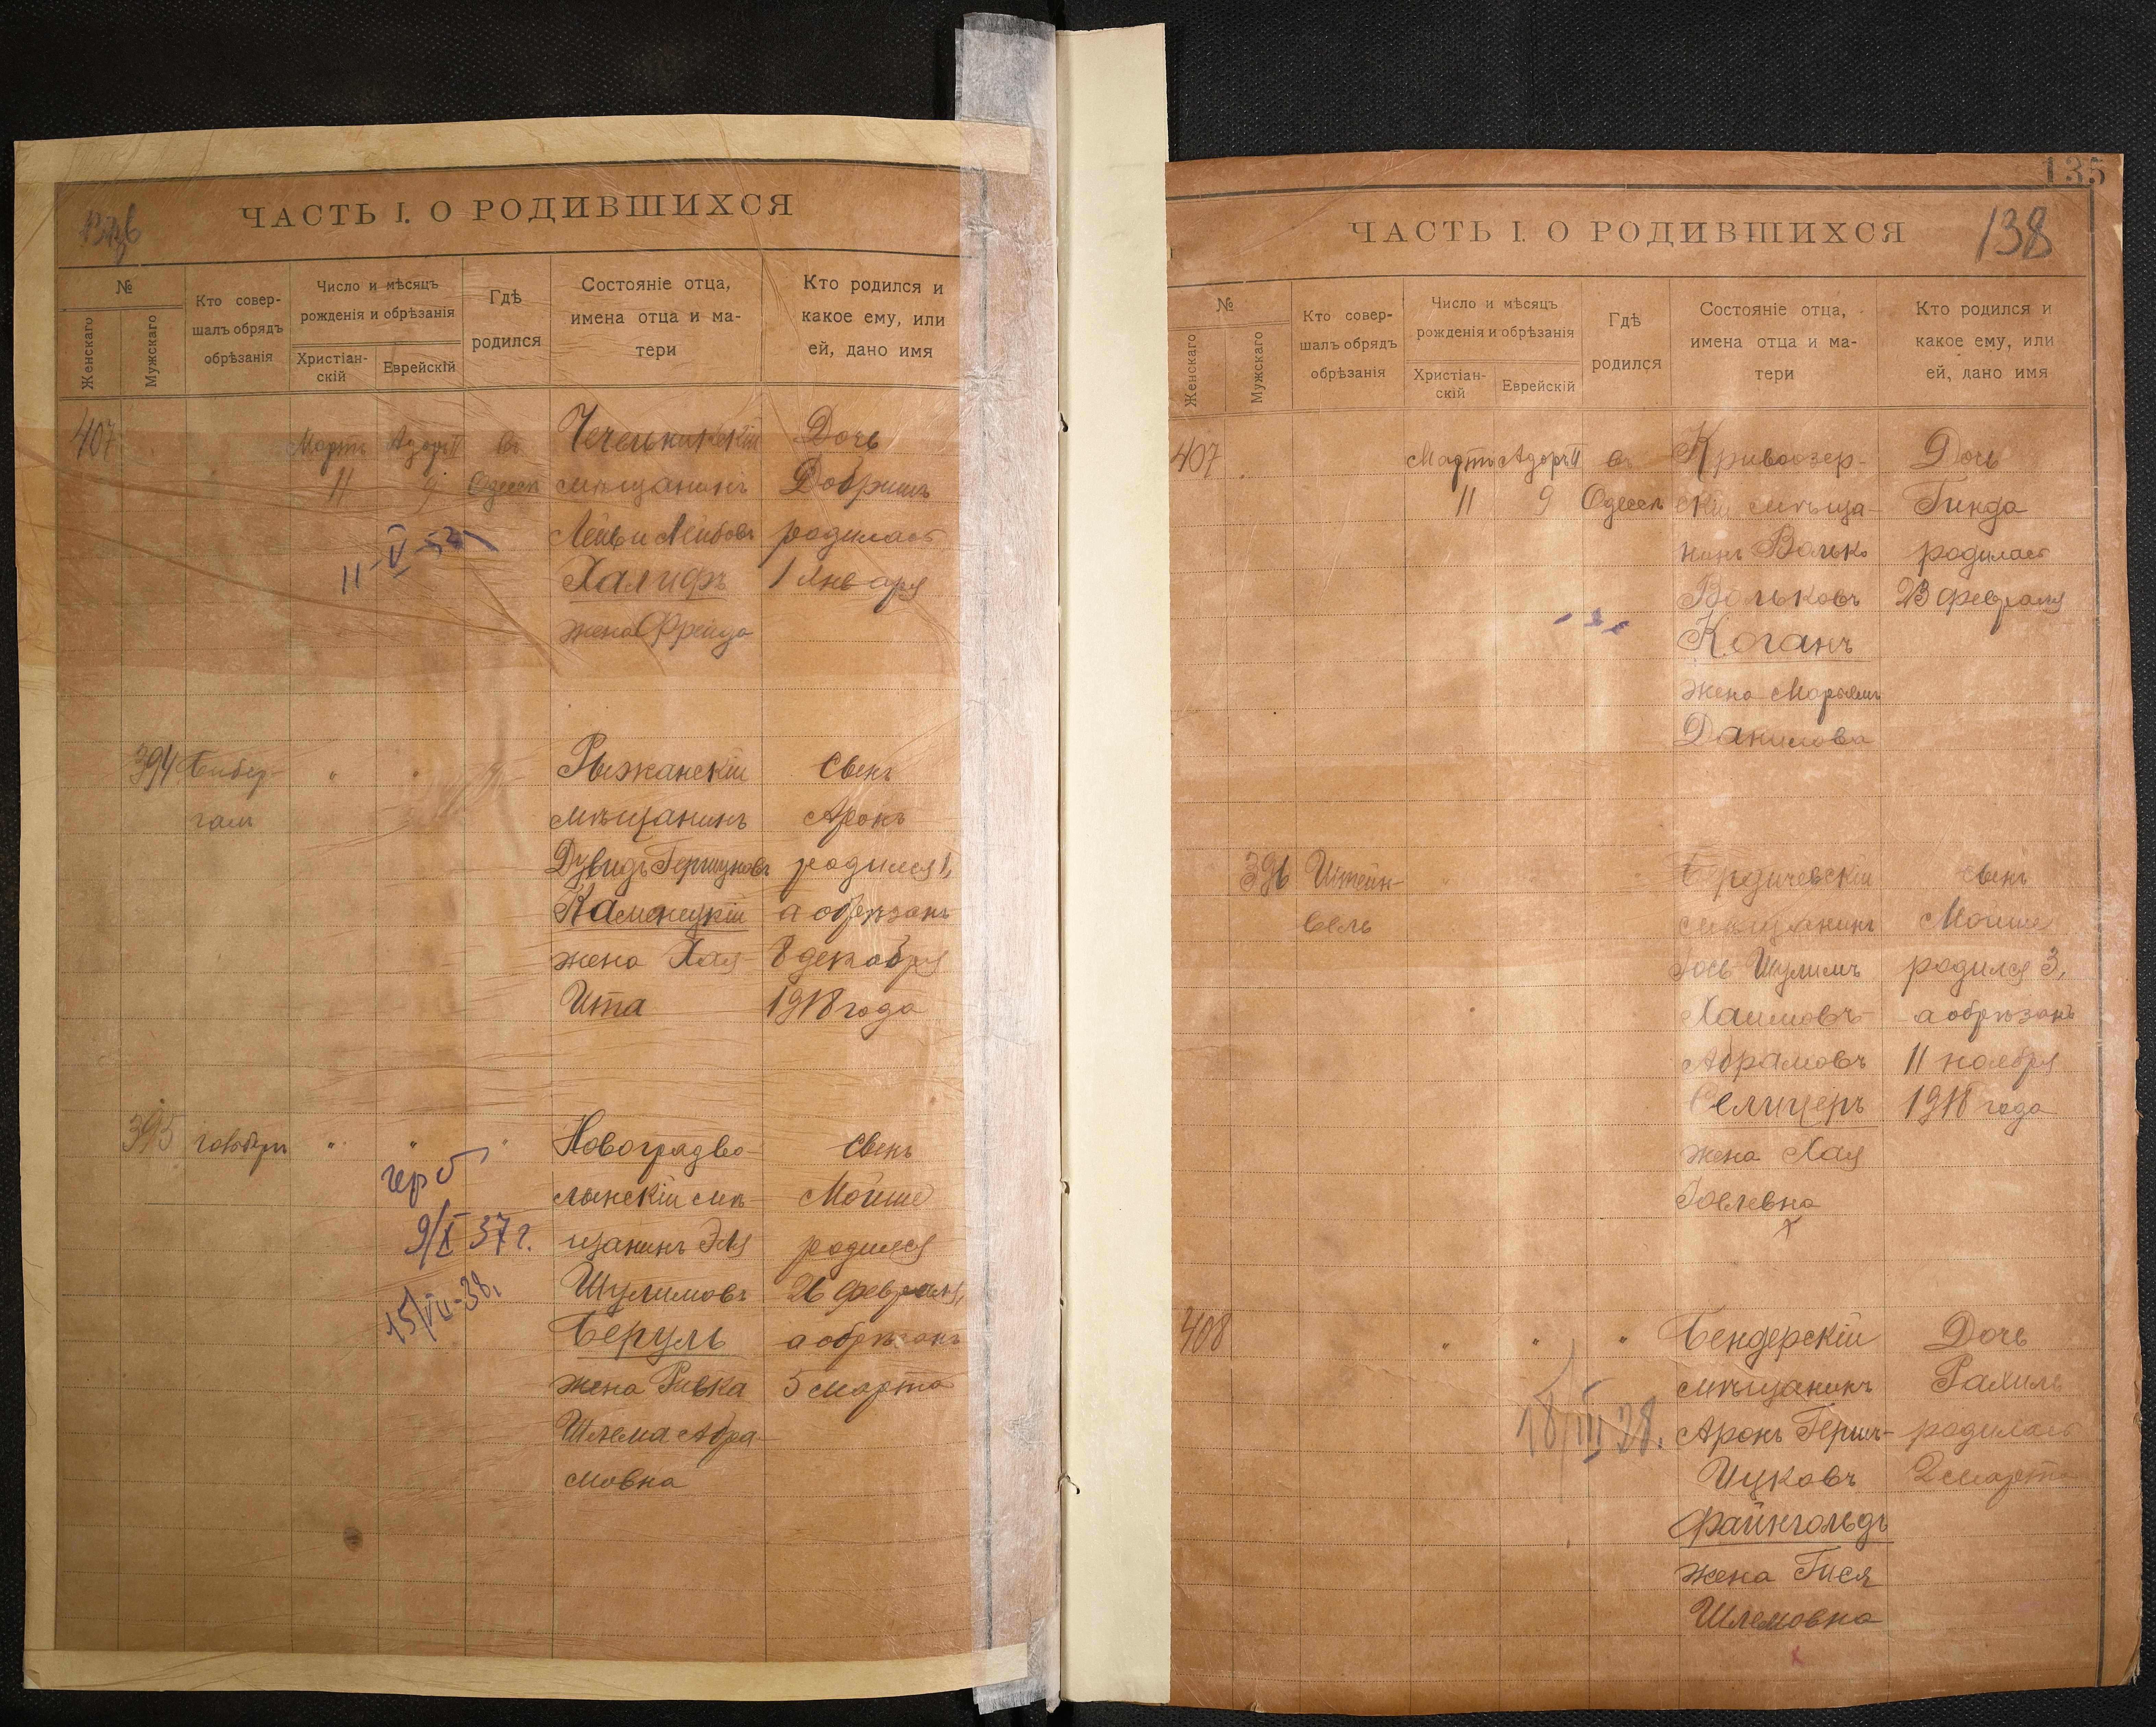 ЧАСТЬ I. О РОДИВШИХСЯ
№
Женскаго
Мужскаго
Кто совер-
шалъ обрядъ
обрѣзанія
Число и мѣсяцъ
рожденія и обрѣзанія
Христіан-
скій
Еврейскій
Гдѣ
родился
Состояніе отца,
имена отца и ма-
тери
Кто родился и
какое ему, или
ей, дано имя
407
Мартъ
11
Адаръ II
9
въ
Одессѣ
11-V-52
Чечельницкій
мѣщанинъ
Лейви Лейбовъ
Халифъ
жена Фрейда
Дочь
Добришъ
родилась
1 января
394
Бибер-
галъ
" "
Рыжанскій
мѣщанинъ
Дувидъ Гершуновъ
Каменецкій
жена Хая-
Ита
Сынъ
Аронъ
родился 1,
а обрѣзанъ
8 декабря
1918 года
395
" " "
герб
9/X 37 г.
15/VII-38,
Новоградво-
лынскій мѣ-
щанинъ Эля
Шулимовъ
Беруль
жена Ривка
Шлема Абра-
мовна
Сынъ
Мойше
родился
26 февраля,
а обрѣзанъ
5 марта
135
ЧАСТЬ I. О РОДИВШИХСЯ
138
№
Женскаго
Мужскаго
Кто совер-
шалъ обрядъ
обрѣзанія
Число и мѣсяцъ
рожденія и обрѣзанія
Христіан-
скій
Еврейскій
Гдѣ
родился
Состояніе отца,
имена отца и ма-
тери
Кто родился и
какое ему, или
ей, дано имя
407
Мартъ
11
Адаръ II
9
въ
Одессѣ
Кривоозер-
скій мѣща-
нинъ Волько
Вольковъ
Коганъ
жена Марьямъ
Данилова
Дочь
Гинда
родилась
23 февраля
396
Штейн-
вель
Бердичевскій
мѣщанинъ
Іось Шулимъ
Хаимовъ-
Абрамовъ
Селицеръ
жена Хая
Іоелевна
сынъ
Мойше
родился 3,
а обрѣзанъ
11 ноября
1918 года
408
" " "
18/III 28.
Бендерскій
мѣщанинъ
Аронъ Гершъ-
Ицковъ
Файнгольдъ
жена Гися
Шлемовна
Дочь
Рахиль
родилась
2 марта